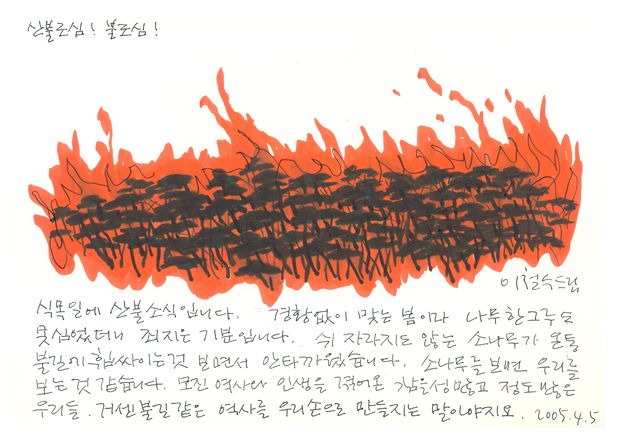 산불조심! 불조심!
이철수드림
식목일에 산불소식입니다. 경황없이 맞는 봄이라 나무한그루도
못심었더니 죄지은 기분입니다. 쉬 자라지도 않는 소나무가 온통
불길에 휩싸이는것 보면서 안타까웠습니다. 소나무를 보면 우리를
보는것 같습니다. 모진 역사와 인생을 겪어온 많고 정도많은
우리들. 거센불길같은 역사를 우리손으로 만들지는 말아야지요. 2005.4.5